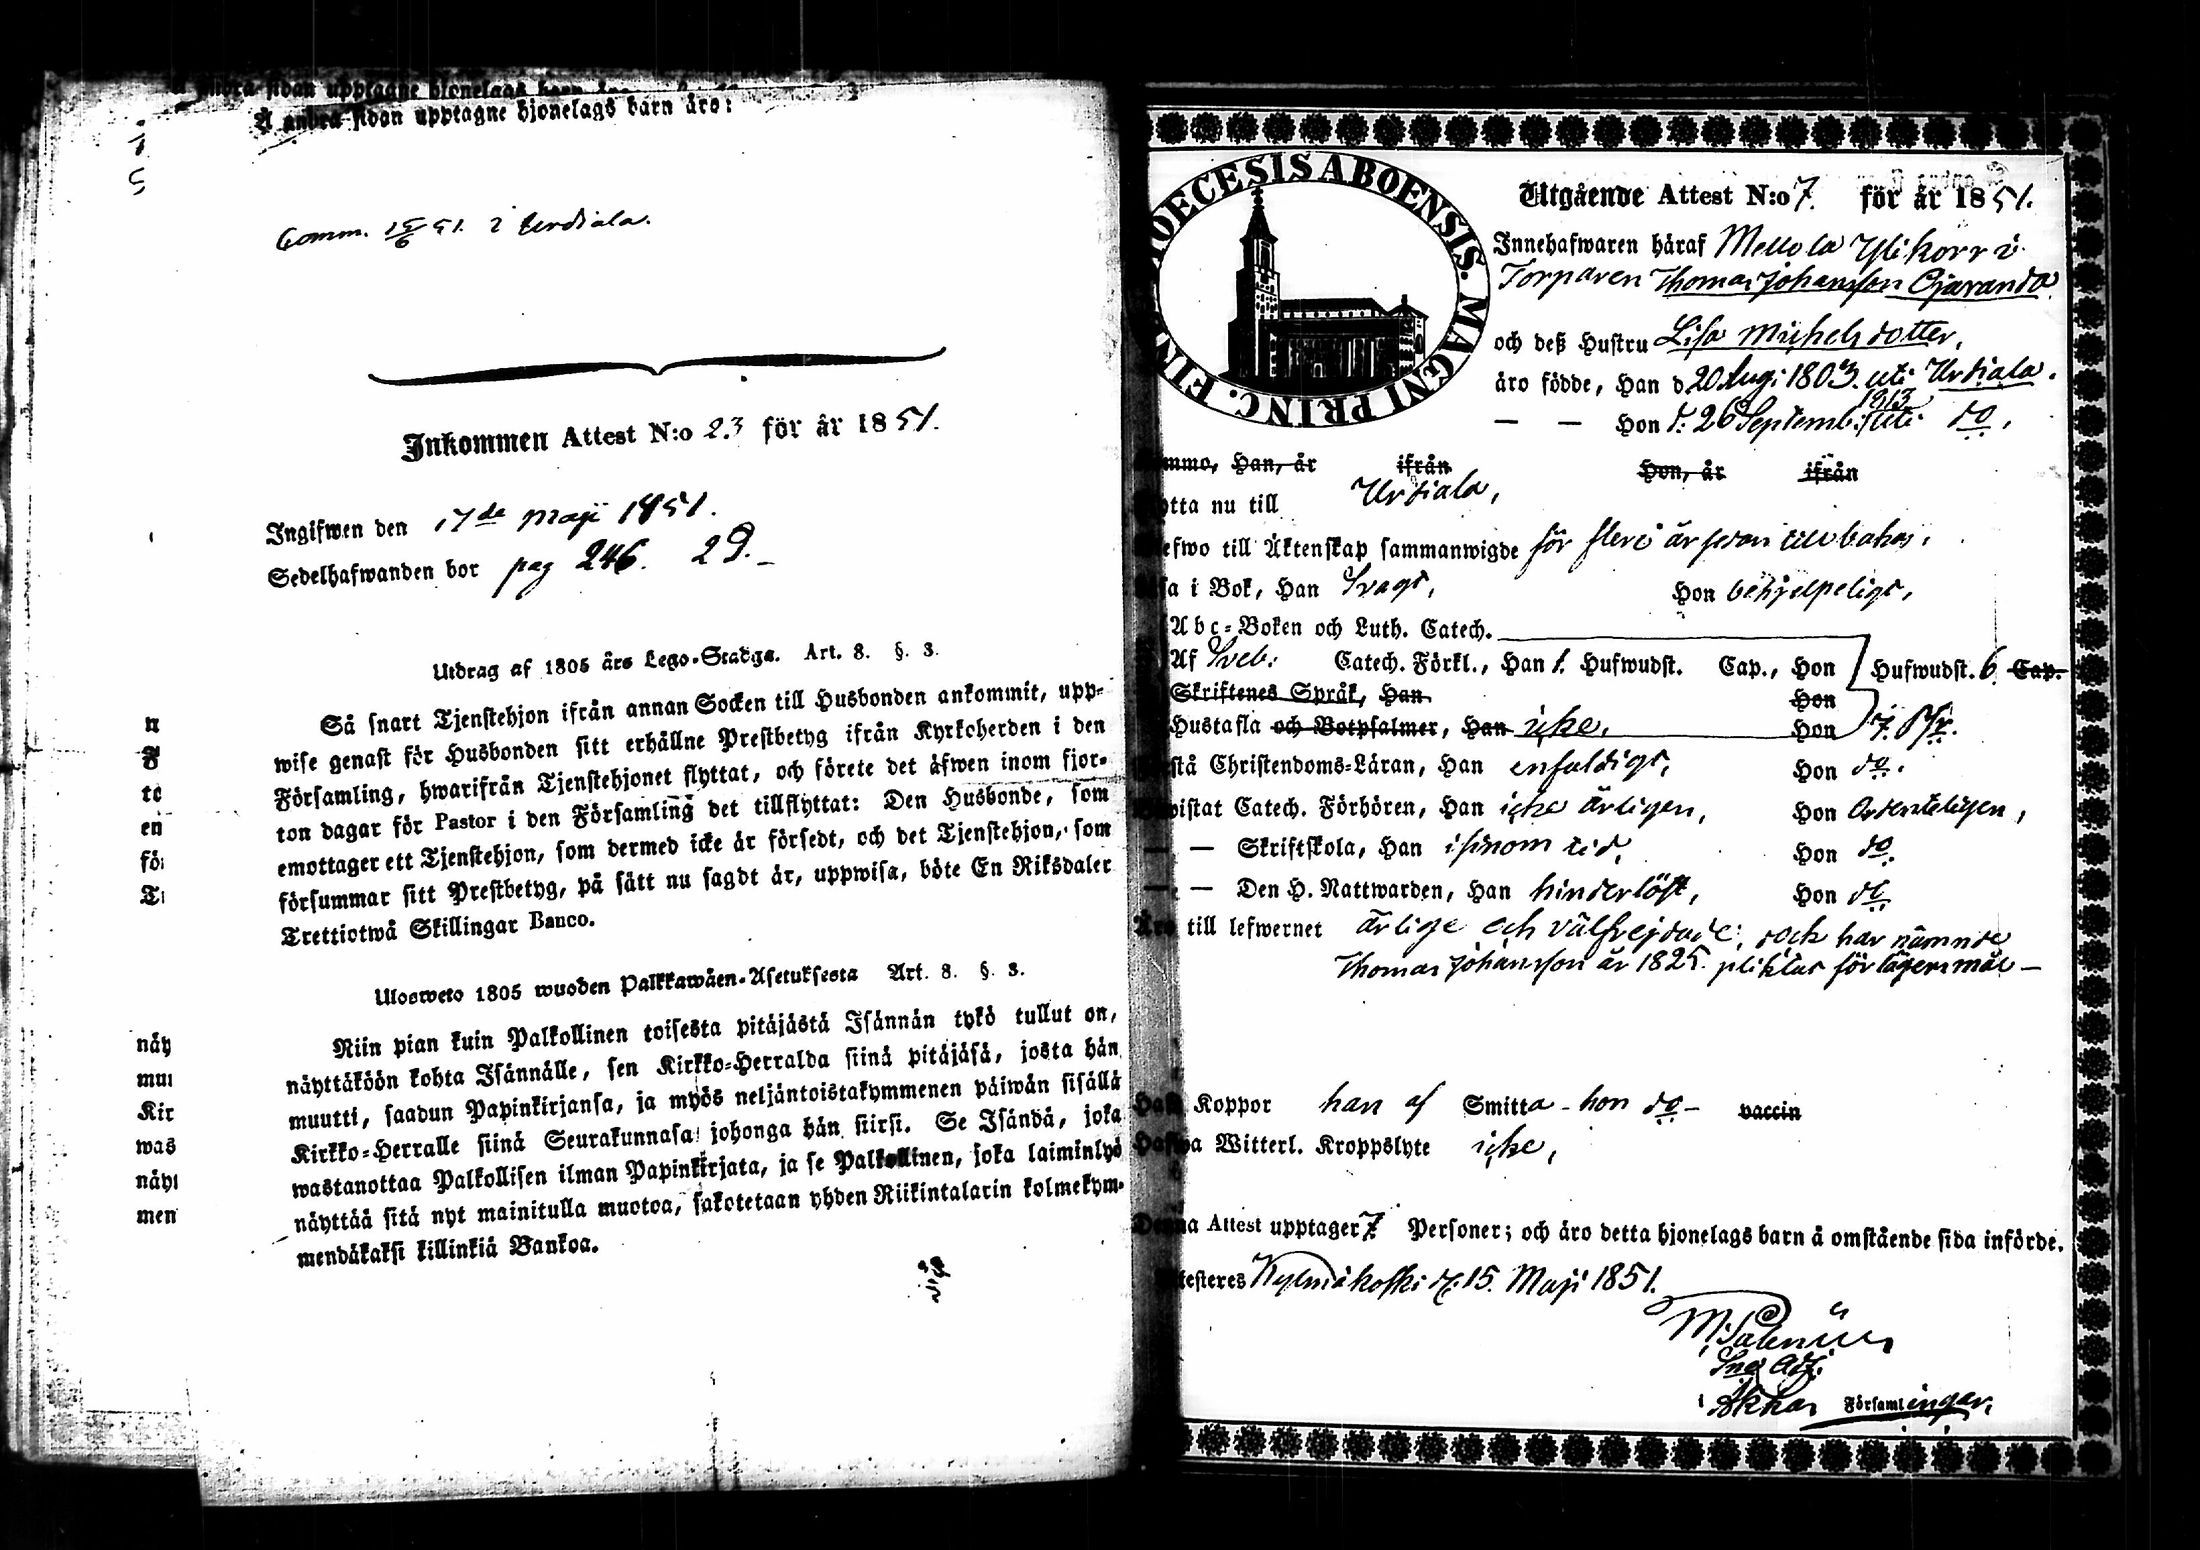 Å andra sidan upptagne hjonelags barn äro:
Comm. 15/6 51. i Urdiala.
Inkommen Attest N:o 23 för år 1851.
Ingifwen den 17de Maji 1851.
Sedelhafwanden bor pag 246. 29.
Utdrag af 1805 års Lego-Stadga. Art. 8. §. 3.
Så snart Tjenstehjon ifrån annan Socken till Husbonden ankommit, upp-
wise genast för Husbonden sitt erhållne Prestbetyg ifrån Kyrkoherden i den
Församling, hwarifrån Tjenstehjonet flyttat, och förete det äfwen inom fjor-
ton dagar för Pastor i den Församling det tillflyttat: Den Husbonde, som
emottager ett Tjenstehjon, som dermed icke är försedt, och det Tjenstehjon, som
försummar sitt Prestbetyg, på sätt nu sagdt är, uppwisa, böte En Riksdaler
Trettiotwå Skillingar Banco.
Ulosweto 1805 wuoden Palkkawäen-Asetuksesta Art. 8. §. 3.
Niin pian kuin Palkollinen toisesta pitäjästä Isännän tykö tullut on,
näyttäköön kohta Isännälle, sen Kirkko-Herralda siinä pitäjäsä, josta hän
muutti, saadun Papinkirjansa, ja myös neljäntoistakymmenen päiwän sisällä
Kirkko-Herralle siinä Seurakunnasa johonga hän siirsi. Se Isändä, joka
wastanottaa Palkollisen ilman Papinkirjata, ja se Palkollinen, joka laiminlyö
näyttää sitä nyt mainitulla muotoa, sakotetaan yhden Riikintalarin kolmekym-
mendäkaksi killinkiä Bankoa.
näy
mut
Kir
was
näyt
men
DIOECESIS ABOENSIS. MAGNI PRINC. FIN
Utgående Attest N:o 7. för år 1851.
Innehafwaren häraf Mellola Yli korri
Torparen Thomas Johansson
och deß Hustru Lisa Michelsdotter,
äro födde, Han d. 20 Aug: 1803. uti Urdiala.
— — Hon d. 26 Septemb: 1813 uti do.
ommo, Han, år ifrån Hon, år ifrån
ytta nu till Urdiala,
lefwo till Äktenskap sammanwigde för flere år sedan tillbakas,
äsa i Bok, Han Svagt, Hon behjelpeligt,
Abc-Boken och Luth. Catech.
Af Sveb: Catech. Förkl., Han 1. Hufwudst. Cap., Hon Hufwudst. 6 Cap.
Skriftenes Språk, Han Hon
Hustafla och Botpsalmer, Han icke, Hon 7.
stå Christendoms-Läran, Han enfaldigt, Hon do.
wistat Catech. Förhören, Han icke årligen, Hon Ordenteligen,
— — Skriftskola, Han i sinom tid, Hon do.
— — Den H. Nattwarden, Han hinderlöst, Hon do.
Äro till lefwernet ärlige och välfrejdade, dock har nämnde
Thomas Johansson år 1825. pliktat för lägersmål —
Haft Koppor han af Smitta - hon do - vaccin
Hafwa Witterl. Kroppslyte icke,
Denna Attest upptager 7 Personer; och äro detta hjonelags barn å omstående sida införde.
testeres Kylmäkoski d. 15. Maji 1851.
i Akkas Församlingar.